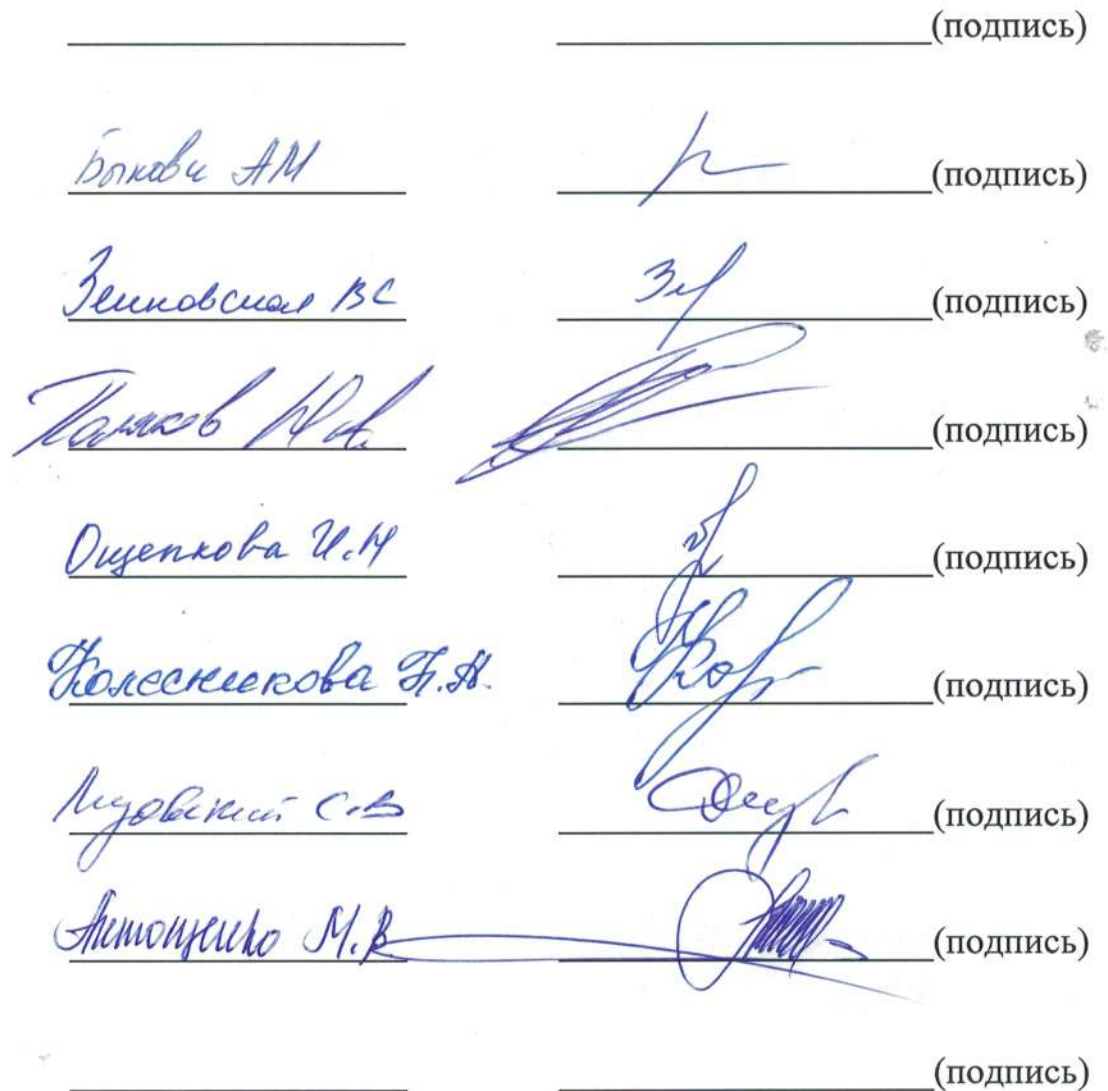 (подпись)
Быкова АМ (подпись)
Зенковская ВС (подпись)
(подпись)
Ощепкова И.Н (подпись)
Колесникова Т.А. (подпись)
С.В (подпись)
Антощенко М.В (подпись)
(подпись)